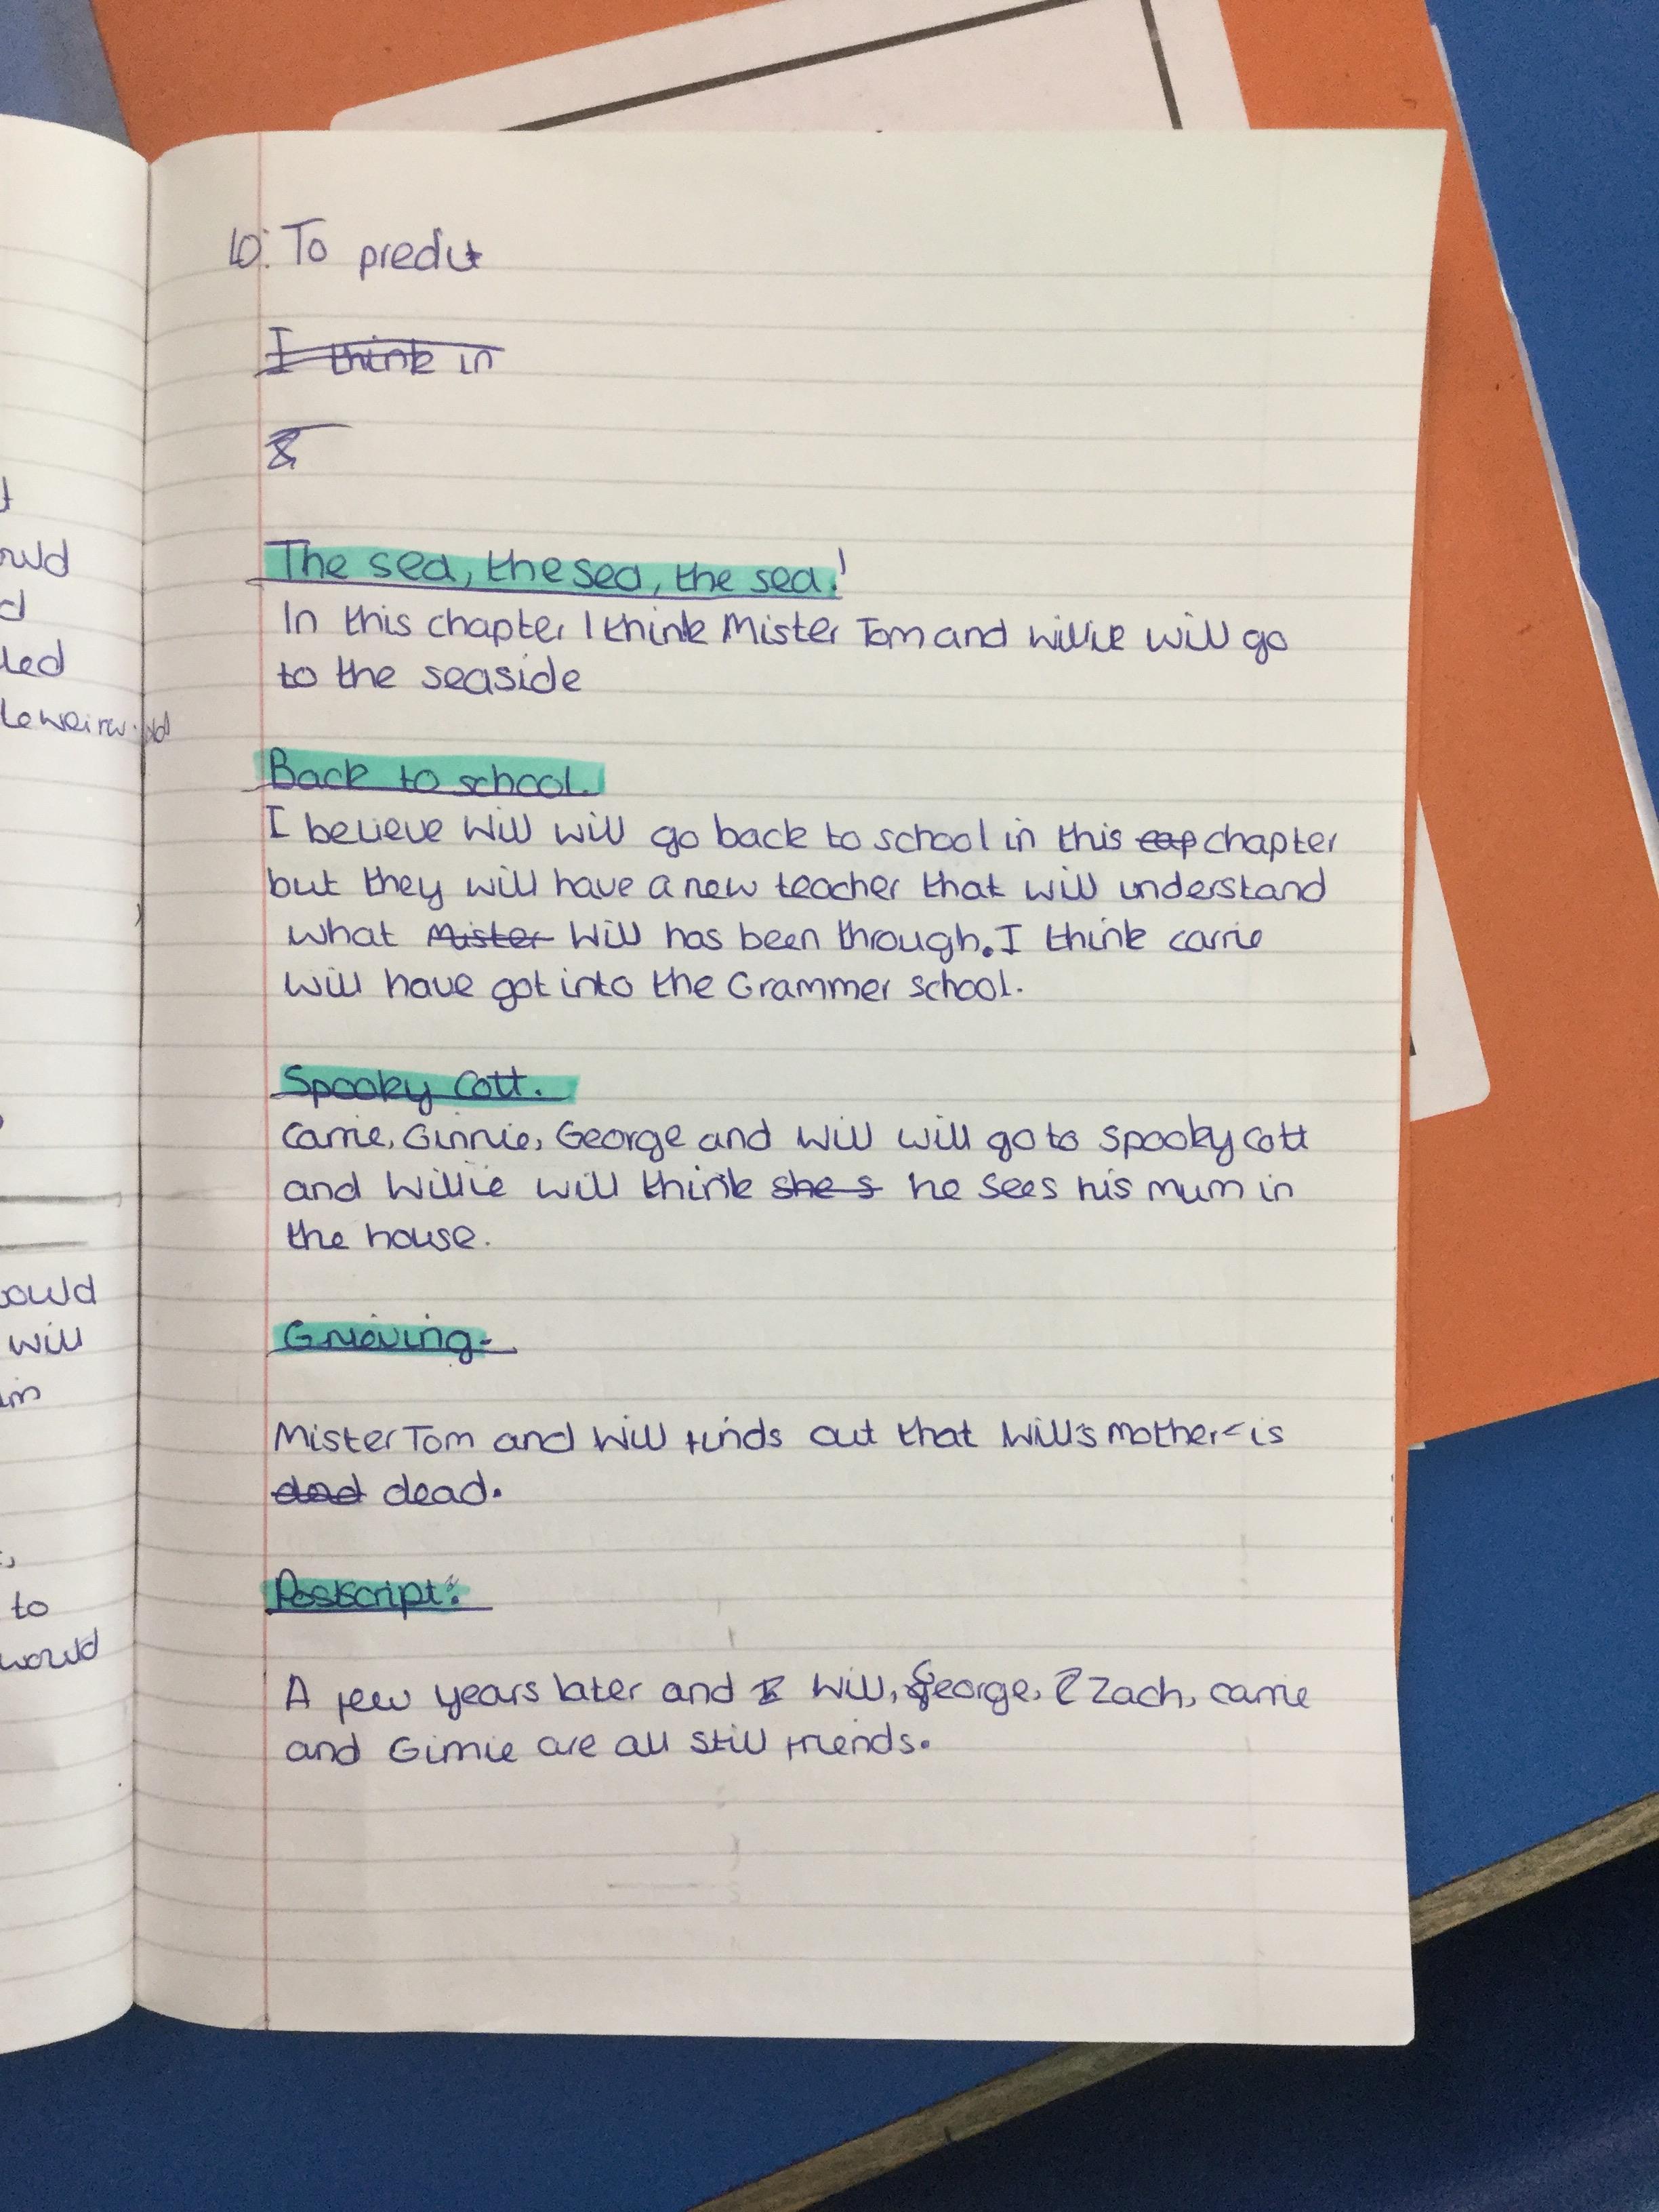 ould
d
led
would
will
to
would
LO: To predict
I think in
The sea, the sea, the sea!
In this chapter I think Mister Tom and Willie will go
to the seaside
Back to school.
I believe Will will go back to school in this cap chapter
but they will have a new teacher that will understand
what Mister Will has been through. I think carrie
will have got into the Grammer school.
Spooky Cott.
Carrie, Ginnie, George and Will will go to spooky cott
and Willie will think she s he sees his mum in
the house.
Grieving
Mister Tom and Will finds out that Will's mother is
dad dead.
Postscript:
A few years later and Will, George, Zach, carrie
and Ginnie are all still friends.